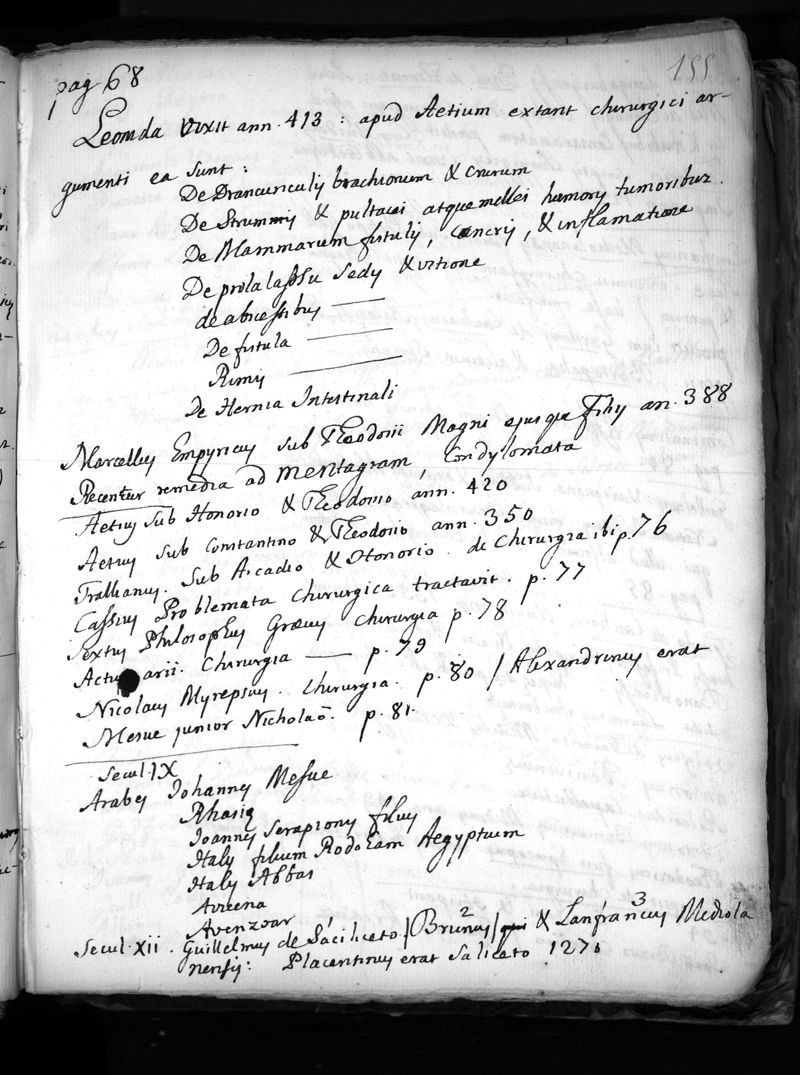 pag 68
155
Leonida vixit ann. 413 : apud Aetium extant chirurgici ar-
gumenti ea sunt :
De Dracunculis brachiorum & crurum
De Strummis & pultacei atque mellei humoris tumoribus.
De Mammarum fistulis, cancris, & inflamatione
De prolalassu sedis & vitione
de abscessibus
De fistula
Rimis
De Hernia Intestinali
Marcellus Empyricus sub Theodosii Magni ejusque filiis an. 388
Recentur remedia ad mentagram, condylomata
Aetius sub Honorio & Theodosio ann. 420
Aetius sub Constantino & Theodosio ann. 350
Trallianus. sub Arcadio & Honorio. de Chirurgia ibi p. 76
Cassius Problemata chirurgica tractavit. p. 77
Sextus Philosophus Graecus chirurgia p. 78
Actuarii. Chirurgia — p. 79
Nicolaus Myrepsus. chirurgia. p. 80 / Alexandrinus erat
Mesue junior Nicholaō. p. 81.
Secul. IX
Arabes Johannes Mesue
Rhasis
Joannes Serapionis filius
Italy filium Rodoham Aegyptium
Italy Abbas
Avicena
Avenzoar
Secul. xii. Guillelmus de Saliceto / Brunus 2 / & Lanfrancus 3 Mediola
nensis: Placentinus erat Saliceto 1270